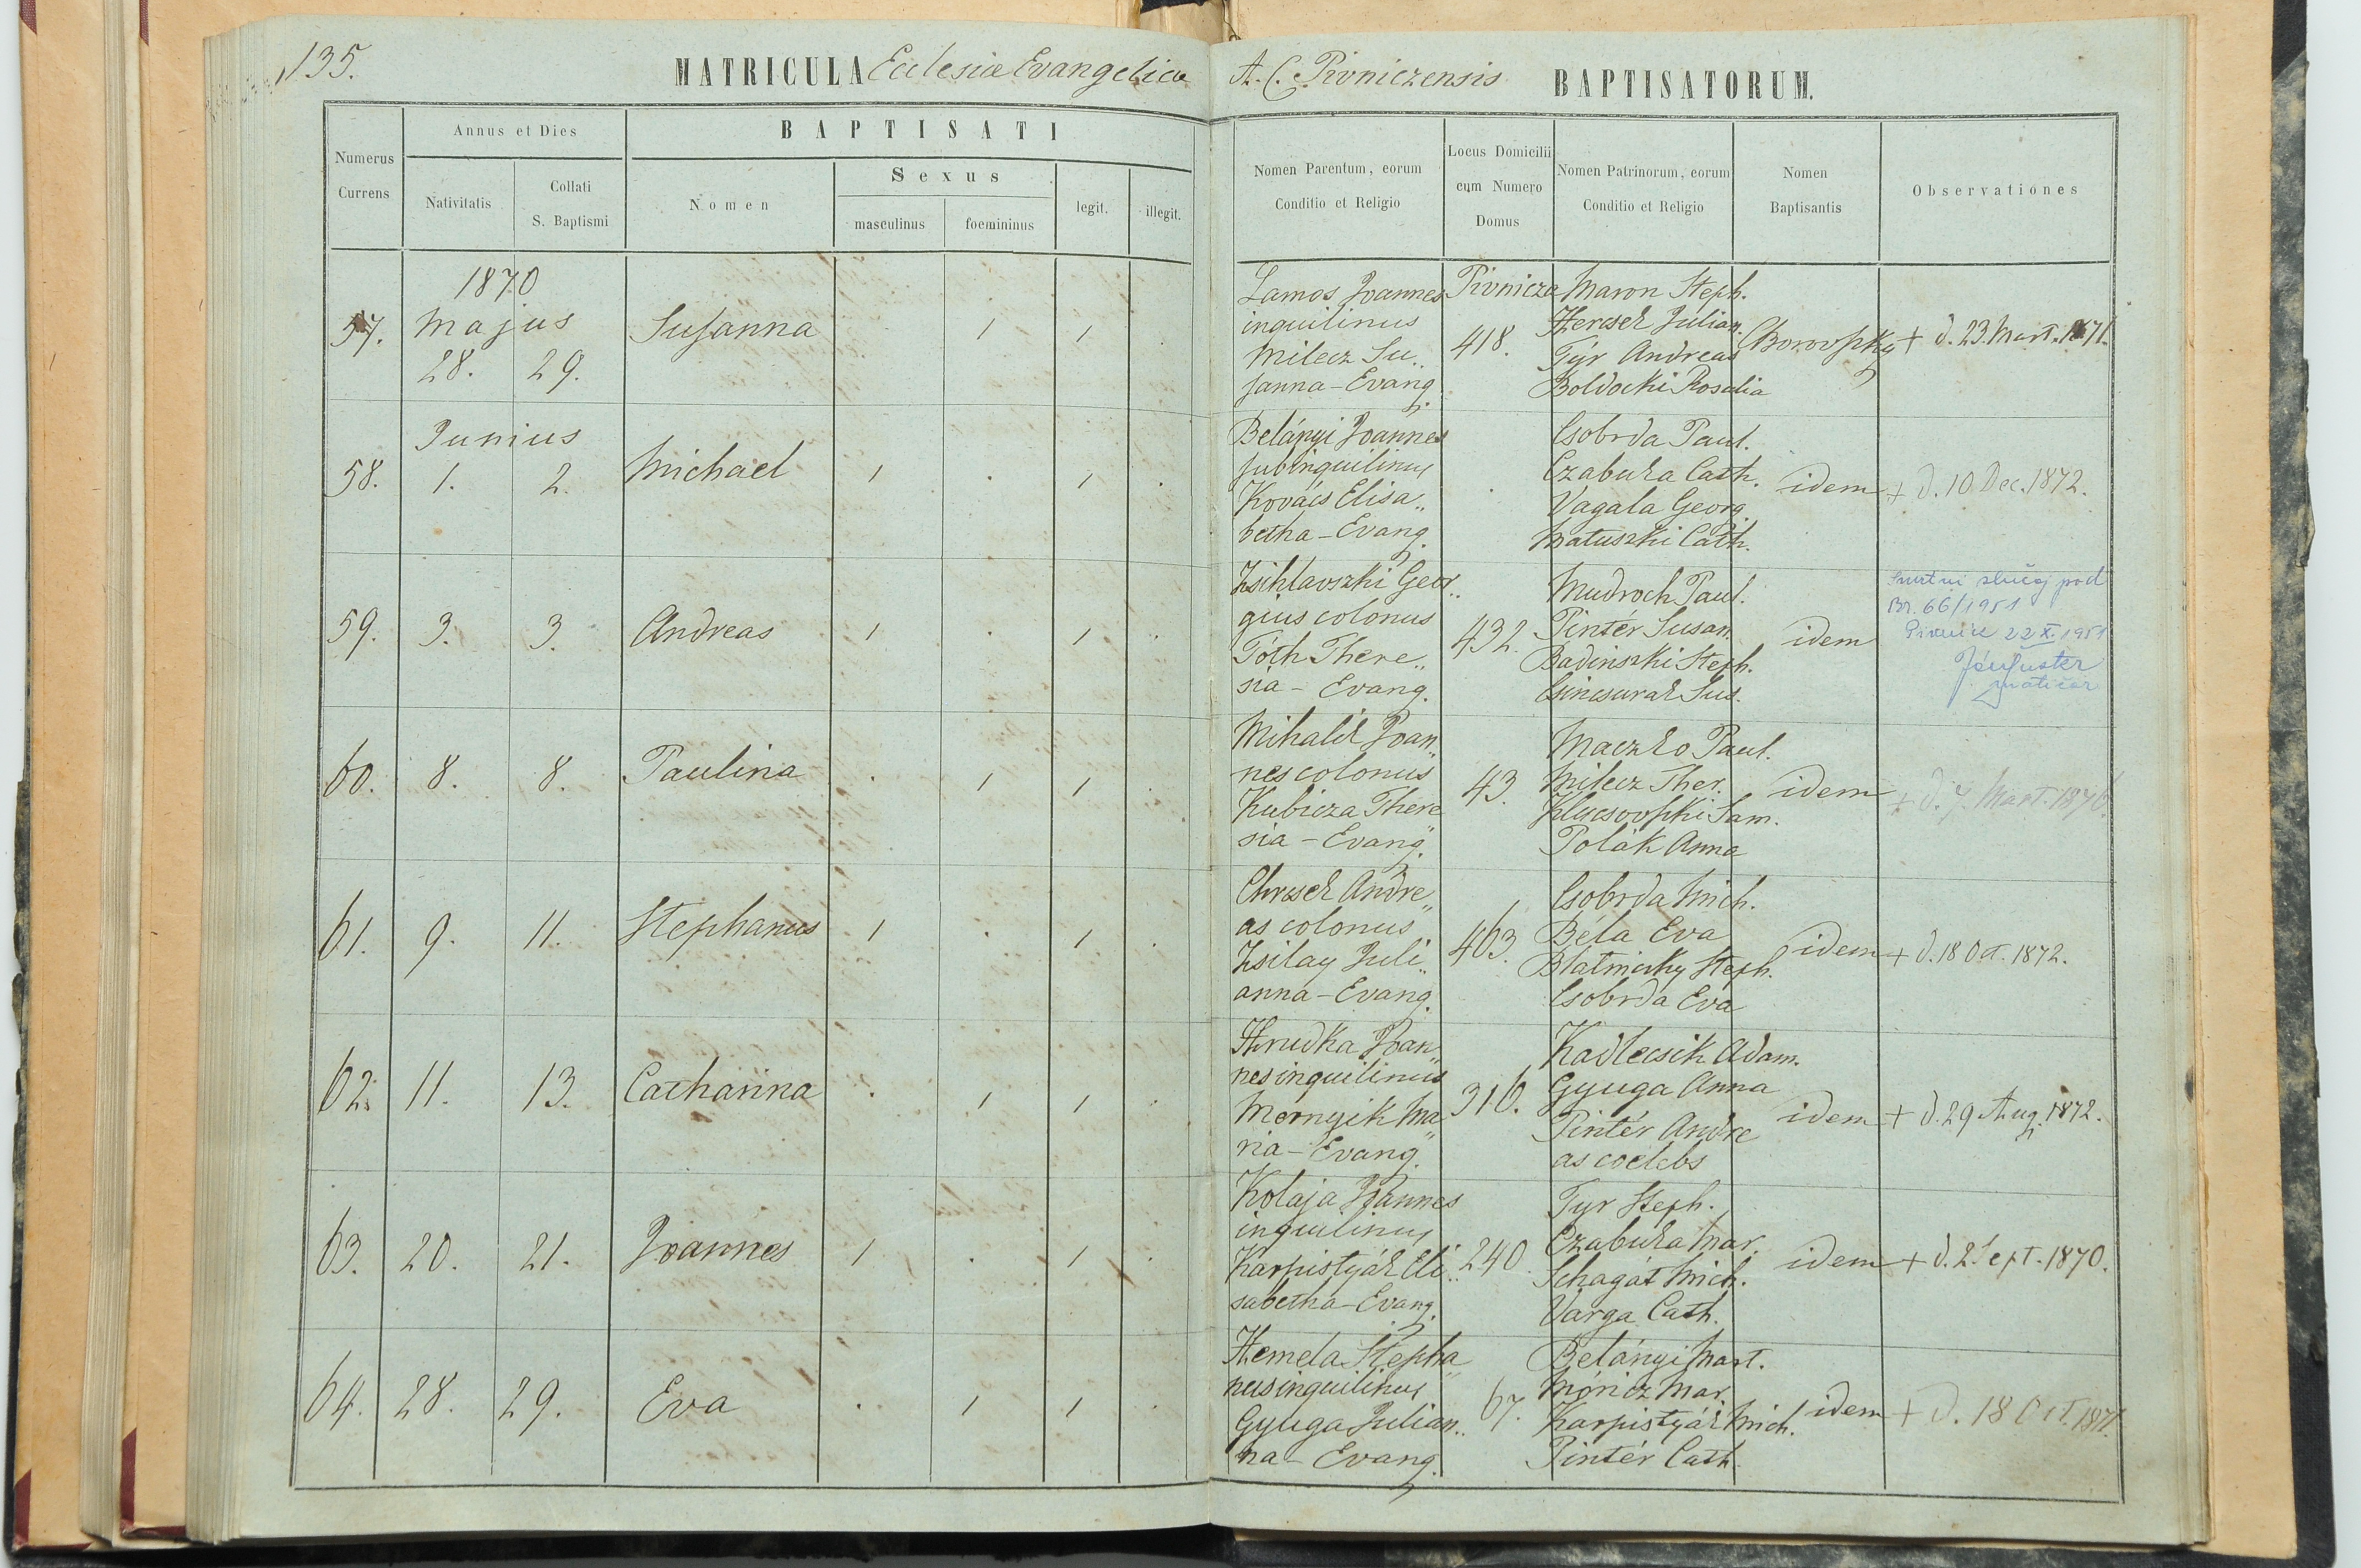 135.
MATRICULA Ecclesiæ Evangelicæ A. C. Pivniczensis BAPTISATORUM.
Numerus Currens
Annus et Dies
Nativitatis
Collati S. Baptismi
BAPTISATI
Nomen
Sexus
masculinus
foemininus
legit.
illegit.
Nomen Parentum, eorum
Conditio et Religio
Locus Domicilii
cum Numero
Domus
Nomen Patrinorum, eorum
Conditio et Religio
Nomen
Baptisantis
Observationes
1870
57. Majus
28. 29.
Susanna . 1 1 .
Lamos Joannes
inquilinus
Milecz Su„
sanna - Evang.
Pivnicza
418.
Maron Steph.
Hercsek Julian.
Týr Andreas
Boldocki Rosalia
Borovszky
+ d. 23. Mart. 1871.
Junius
58. 1. 2. Michael 1 . 1 .
Belányi Joannes
subinquilinus
Kovács Elisa„
betha - Evang.
.
Csobrda Paul.
Czabuka Cath.
Vagala Georg.
Matuszki Cath.
idem
+ d. 10 Dec. 1872.
59. 3. 3. Andreas 1 . 1 .
Zsihlavszki Geor„
gius colonus
Tóth There„
sia - Evang.
432.
Mudroch Paul.
Pintér Susan.
Badinszki Steph.
Csincsurak Sus.
idem
Smrtni slučaj pod
Br. 66/1951
Pivnice 22 X. 1951
matičar
60. 8. 8. Paulina . 1 1 .
Mihalik Joan„
nes colonus
Kubicza There„
sia - Evang.
43.
Maczko Paul.
Milecz Ther.
Klucsovszki Sam.
Polák Anna
idem
+ d. 7. Mart. 1876.
61. 9. 11. Stephanus 1 . 1 .
Chrcsek Andre„
as colonus
Zsilay Juli„
anna - Evang.
463.
Csobrda Mich.
Béla Eva
Blatniczky Steph.
Csobrda Eva
idem
+ d. 18 Oct. 1872.
62. 11. 13. Catharina . 1 1 .
Hrudka Joan„
nes inquilinus
Mernyik Ma„
ria - Evang.
316.
Kadlecsik Adam.
Gyuga Anna
Pintér Andre
as coelebs
idem
+ d. 29 Aug. 1872.
63. 20. 21. Joannes 1 . 1 .
Kolaja Joannes
inquilinus
Karpistyák Eli„
sabetha - Evang.
240.
Tyr Steph.
Czabuka Mar.
Schagát Mich.
Varga Cath.
idem
+ d. 2 Sept. 1870.
64. 28. 29. Eva . 1 1 .
Hemela Stepha„
nus inquilinus
Gyuga Julian„
na - Evang.
67.
Belányi Mart.
Móricz Mar.
Karpistyák Mich.
Pintér Cath.
idem
+ d. 18 Oct. 1871.